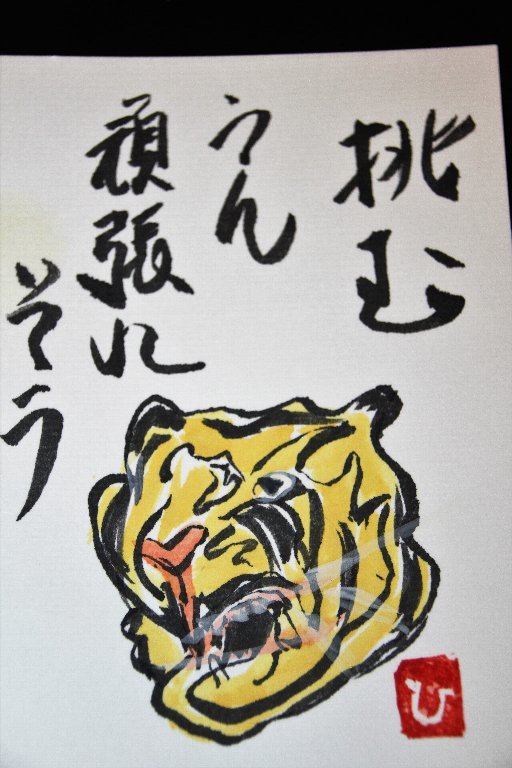 挑む
うん
頑張れ
そう
ひ